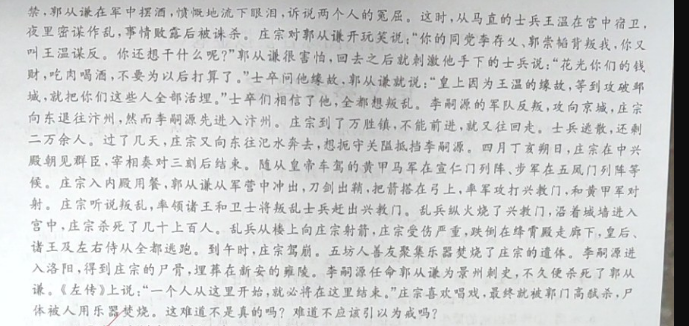 禁,郭从谦在军中摆酒,愤慨地流下眼泪,诉说两个人的冤屈。这时,从马直的士兵王温在宫中宿卫,
夜里密谋作乱,事情败露后被诛杀。庄宗对郭从谦开玩笑说:“你的同党李存乂、郭崇韬背叛我,你又
叫王温谋反。你还想干什么呢?”郭从谦很害怕,回去之后就刺激他手下的士兵说:“花光你们的钱
财,吃肉喝酒,不要为以后打算了。”士卒问他缘故,郭从谦就说:“皇上因为王温的缘故,等到攻破邺
城,就把你们这些人全部活埋。”士卒们相信了他,全都想叛乱。李嗣源的军队反叛,攻向京城,庄宗
向东退往汴州,然而李嗣源先进入汴州。庄宗到了万胜镇,不能前进,就又往回走。士兵逃散,还剩
二万余人。过了几天,庄宗又向东往汜水奔去,想扼守关隘抵挡李嗣源。四月丁亥朔日,庄宗在中兴
殿朝见群臣,宰相奏对三刻后结束。随从皇帝车驾的黄甲马军在宣仁门列阵、步军在五凤门列阵等
候。庄宗入内殿用餐,郭从谦从军营中冲出,刀剑出鞘,把箭搭在弓上,率军攻打兴教门,和黄甲军对
射。庄宗听说叛乱,率领诸王和卫士将叛乱士兵赶出兴教门。乱兵纵火烧了兴教门,沿着城墙进入
宫中,庄宗杀死了几十上百人。乱兵从楼上向庄宗射箭,庄宗受伤严重,跌倒在绛霄殿走廊下,皇后、
诸王及左右侍从全都逃跑。到午时,庄宗驾崩。五坊人善友聚集乐器焚烧了庄宗的遗体。李嗣源进
入洛阳,得到庄宗的尸骨,埋葬在新安的雍陵。李嗣源任命郭从谦为景州刺史,不久便杀死了郭从
谦。《左传》上说:“一个人从这里开始,就必将在这里结束。”庄宗喜欢唱戏,最终就被郭门高弑杀,尸
体被人用乐器焚烧。这难道不是真的吗?难道不应该引以为戒吗?